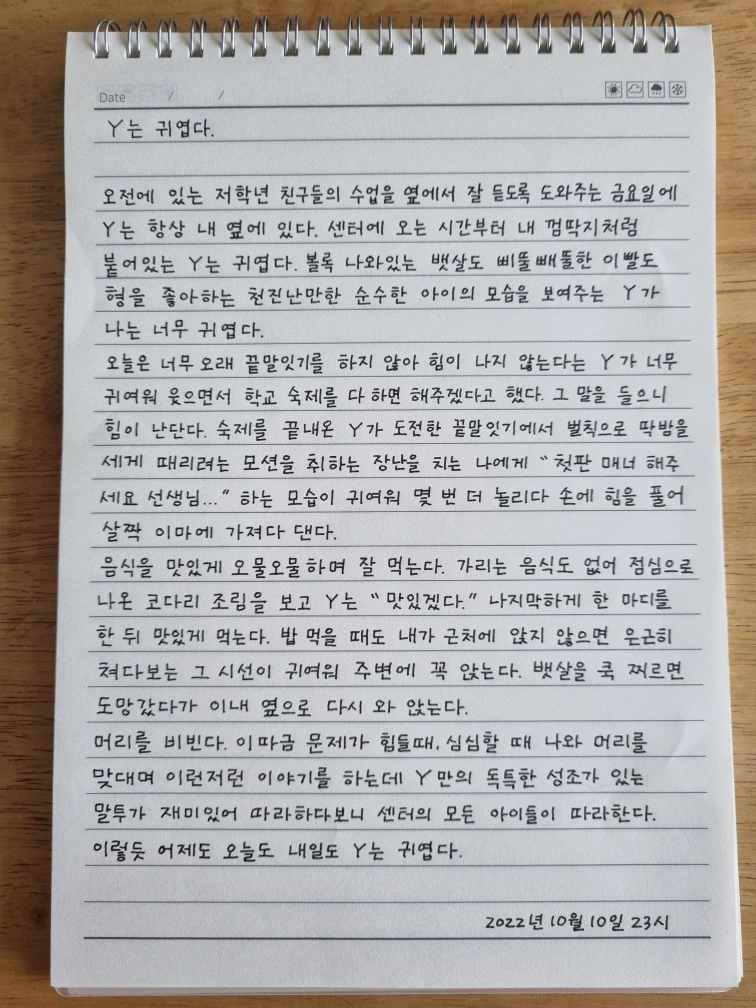 Date / /
Y는 귀엽다.
오전에 있는 저학년 친구들의 수업을 옆에서 잘 듣도록 도와주는 금요일에
Y는 항상 내 옆에 있다. 센터에 오는 시간부터 내 껌딱지처럼
붙어있는 Y는 귀엽다. 볼록 나와있는 뱃살도 삐뚤빼뚤한 이빨도
형을 좋아하는 천진난만한 순수한 아이의 모습을 보여주는 Y가
나는 너무 귀엽다.
오늘은 너무 오래 끝말잇기를 하지 않아 힘이 나지 않는다는 Y가 너무
귀여워 웃으면서 학교 숙제를 다 하면 해주겠다고 했다. 그 말을 들으니
힘이 난단다. 숙제를 끝내온 Y가 도전한 끝말잇기에서 벌칙으로 딱밤을
세게 때리려는 모션을 취하는 장난을 치는 나에게 "첫판 매너 해주
세요 선생님..." 하는 모습이 귀여워 몇 번 더 놀리다 손에 힘을 풀어
살짝 이마에 가져다 댄다.
음식을 맛있게 오물오물하며 잘 먹는다. 가리는 음식도 없어 점심으로
나온 코다리 조림을 보고 Y는 "맛있겠다." 나지막하게 한 마디를
한 뒤 맛있게 먹는다. 밥 먹을 때도 내가 근처에 앉지 않으면 은근히
쳐다보는 그 시선이 귀여워 주변에 꼭 앉는다. 뱃살을 쿡 찌르면
도망갔다가 이내 옆으로 다시 와 앉는다.
머리를 비빈다. 이따금 문제가 힘들때, 심심할 때 나와 머리를
맞대며 이런저런 이야기를 하는데 Y만의 독특한 성조가 있는
말투가 재미있어 따라하다보니 센터의 모든 아이들이 따라한다.
이렇듯 어제도 오늘도 내일도 Y는 귀엽다.
2022년 10월 10일 23시